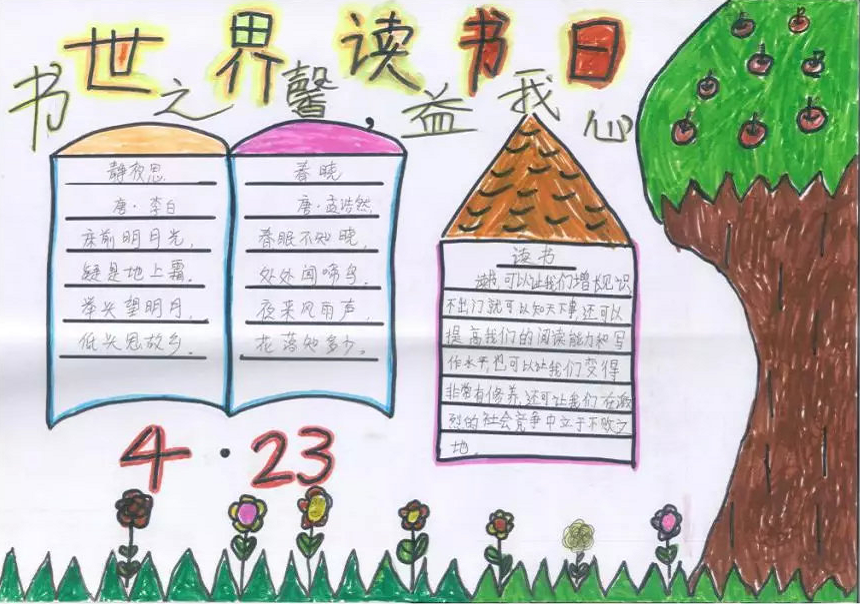 世界读书日
书之馨,益我心
静夜思
唐·李白
床前明月光,
疑是地上霜。
举头望明月,
低头思故乡。
春晓
唐·孟浩然
春眠不知晓,
处处闻啼鸟。
夜来风雨声,
花落知多少。
读书
读书,可以让我们增长见识,
不出门就可以知天下事,还可以
提高我们的阅读能力和写
作水平,也可以让我们变得
非常有修养,还可让我们在激
烈的社会竞争中立于不败之
地。
4·23